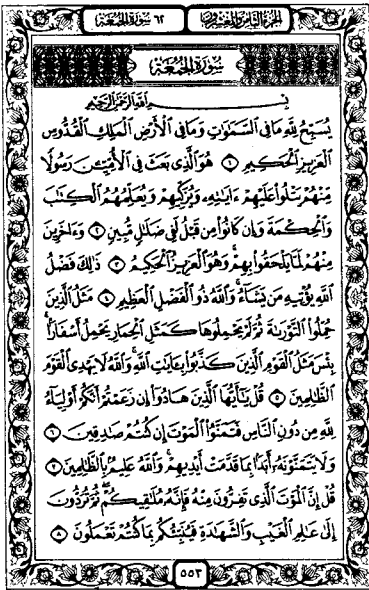 الجزء الثامن والعشرون ٦٢ سورة الجمعة
سُورَةُ الجُمُعَةِ
بِسْمِ اللَّهِ الرَّحْمَٰنِ الرَّحِيمِ
يُسَبِّحُ لِلَّهِ مَا فِي السَّمَٰوَٰتِ وَمَا فِي الْأَرْضِ الْمَلِكِ الْقُدُّوسِ
الْعَزِيزِ الْحَكِيمِ ١ هُوَ الَّذِي بَعَثَ فِي الْأُمِّيِّينَ رَسُولًا
مِنْهُمْ يَتْلُوا۟ عَلَيْهِمْ ءَايَٰتِهِ وَيُزَكِّيهِمْ وَيُعَلِّمُهُمُ الْكِتَٰبَ
وَالْحِكْمَةَ وَإِن كَانُوا۟ مِن قَبْلُ لَفِي ضَلَٰلٍ مُّبِينٍ ٢ وَءَاخَرِينَ
مِنْهُمْ لَمَّا يَلْحَقُوا۟ بِهِمْ وَهُوَ الْعَزِيزُ الْحَكِيمُ ٣ ذَٰلِكَ فَضْلُ
اللَّهِ يُؤْتِيهِ مَن يَشَآءُ وَاللَّهُ ذُو الْفَضْلِ الْعَظِيمِ ٤ مَثَلُ الَّذِينَ
حُمِّلُوا۟ التَّوْرَىٰةَ ثُمَّ لَمْ يَحْمِلُوهَا كَمَثَلِ الْحِمَارِ يَحْمِلُ أَسْفَارًۢا
بِئْسَ مَثَلُ الْقَوْمِ الَّذِينَ كَذَّبُوا۟ بِـَٔايَٰتِ اللَّهِ وَاللَّهُ لَا يَهْدِي الْقَوْمَ
الظَّٰلِمِينَ ٥ قُلْ يَٰٓأَيُّهَا الَّذِينَ هَادُوٓا۟ إِن زَعَمْتُمْ أَنَّكُمْ أَوْلِيَآءُ
لِلَّهِ مِن دُونِ النَّاسِ فَتَمَنَّوُا۟ الْمَوْتَ إِن كُنتُمْ صَٰدِقِينَ ٦
وَلَا يَتَمَنَّوْنَهُۥٓ أَبَدًۢا بِمَا قَدَّمَتْ أَيْدِيهِمْ وَاللَّهُ عَلِيمٌۢ بِالظَّٰلِمِينَ ٧
قُلْ إِنَّ الْمَوْتَ الَّذِي تَفِرُّونَ مِنْهُ فَإِنَّهُۥ مُلَٰقِيكُمْ ثُمَّ تُرَدُّونَ
إِلَىٰ عَٰلِمِ الْغَيْبِ وَالشَّهَٰدَةِ فَيُنَبِّئُكُم بِمَا كُنتُمْ تَعْمَلُونَ ٨
٥٥٣